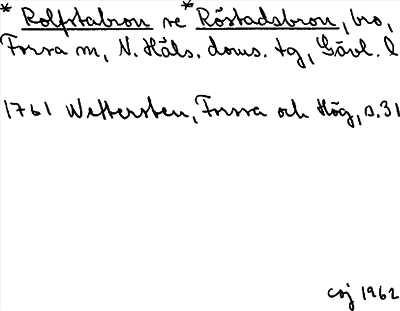 * Rolfstabron se * Röstadsbron, bro,
Forsa sn, N. Häls. doms. tg, Gävl. l
1761 Wettersten, Forssa och Hög, s. 31
csj 1962